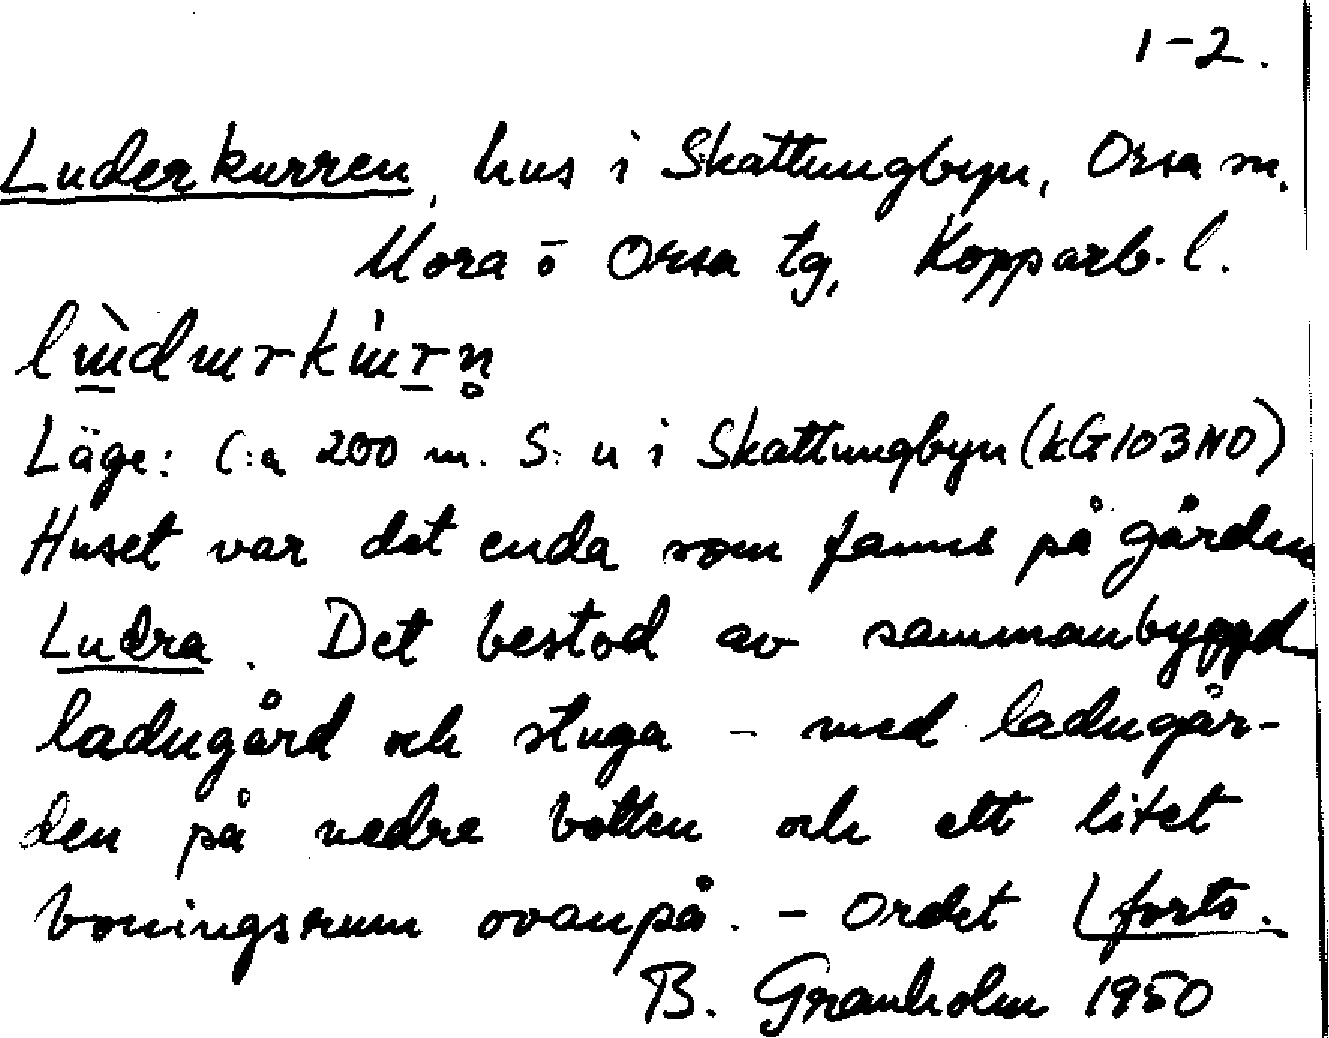 1-2.
Luderkurren, hus i Skattungbyn, Orsa sn,
Mora o Orsa tg, Kopparb. l.
Läge: C:a 200 m. S. u i Skattungbyn (kG103NO)
Huset var det enda som fanns på gården
Ludra. Det bestod av sammanbyggd
ladugård och stuga – med ladugår-
den på nedre botten och ett litet
boningsrum ovanpå. – Ordet (forts.
B. Granholm 1950